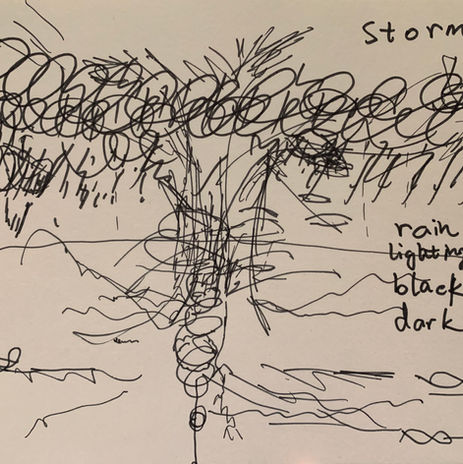 Storm
rain
lightning
black
dark